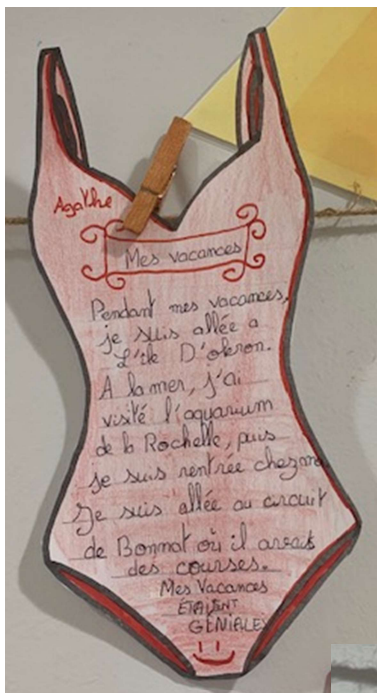 Agathe
Mes vacances
Pendant mes vacances,
je suis allée a
L'île D'oleron.
A la mer, j'ai
visité l'aquarium
de la Rochelle, puis
je suis rentrée chez moi
Je suis allée au circuit
de Bonnat où il avait
des courses.
Mes Vacances
ÉTAIENT
GÉNIALES